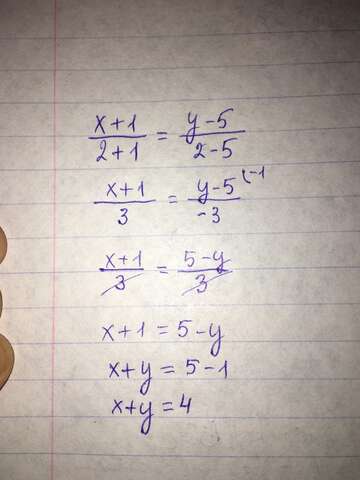 (x+1)/(2+1) = (y-5)/(2-5)
(x+1)/3 = (y-5)/-3 (-1
(x+1)/3 = (5-y)/3
x+1=5-y
x+y=5-1
x+y=4